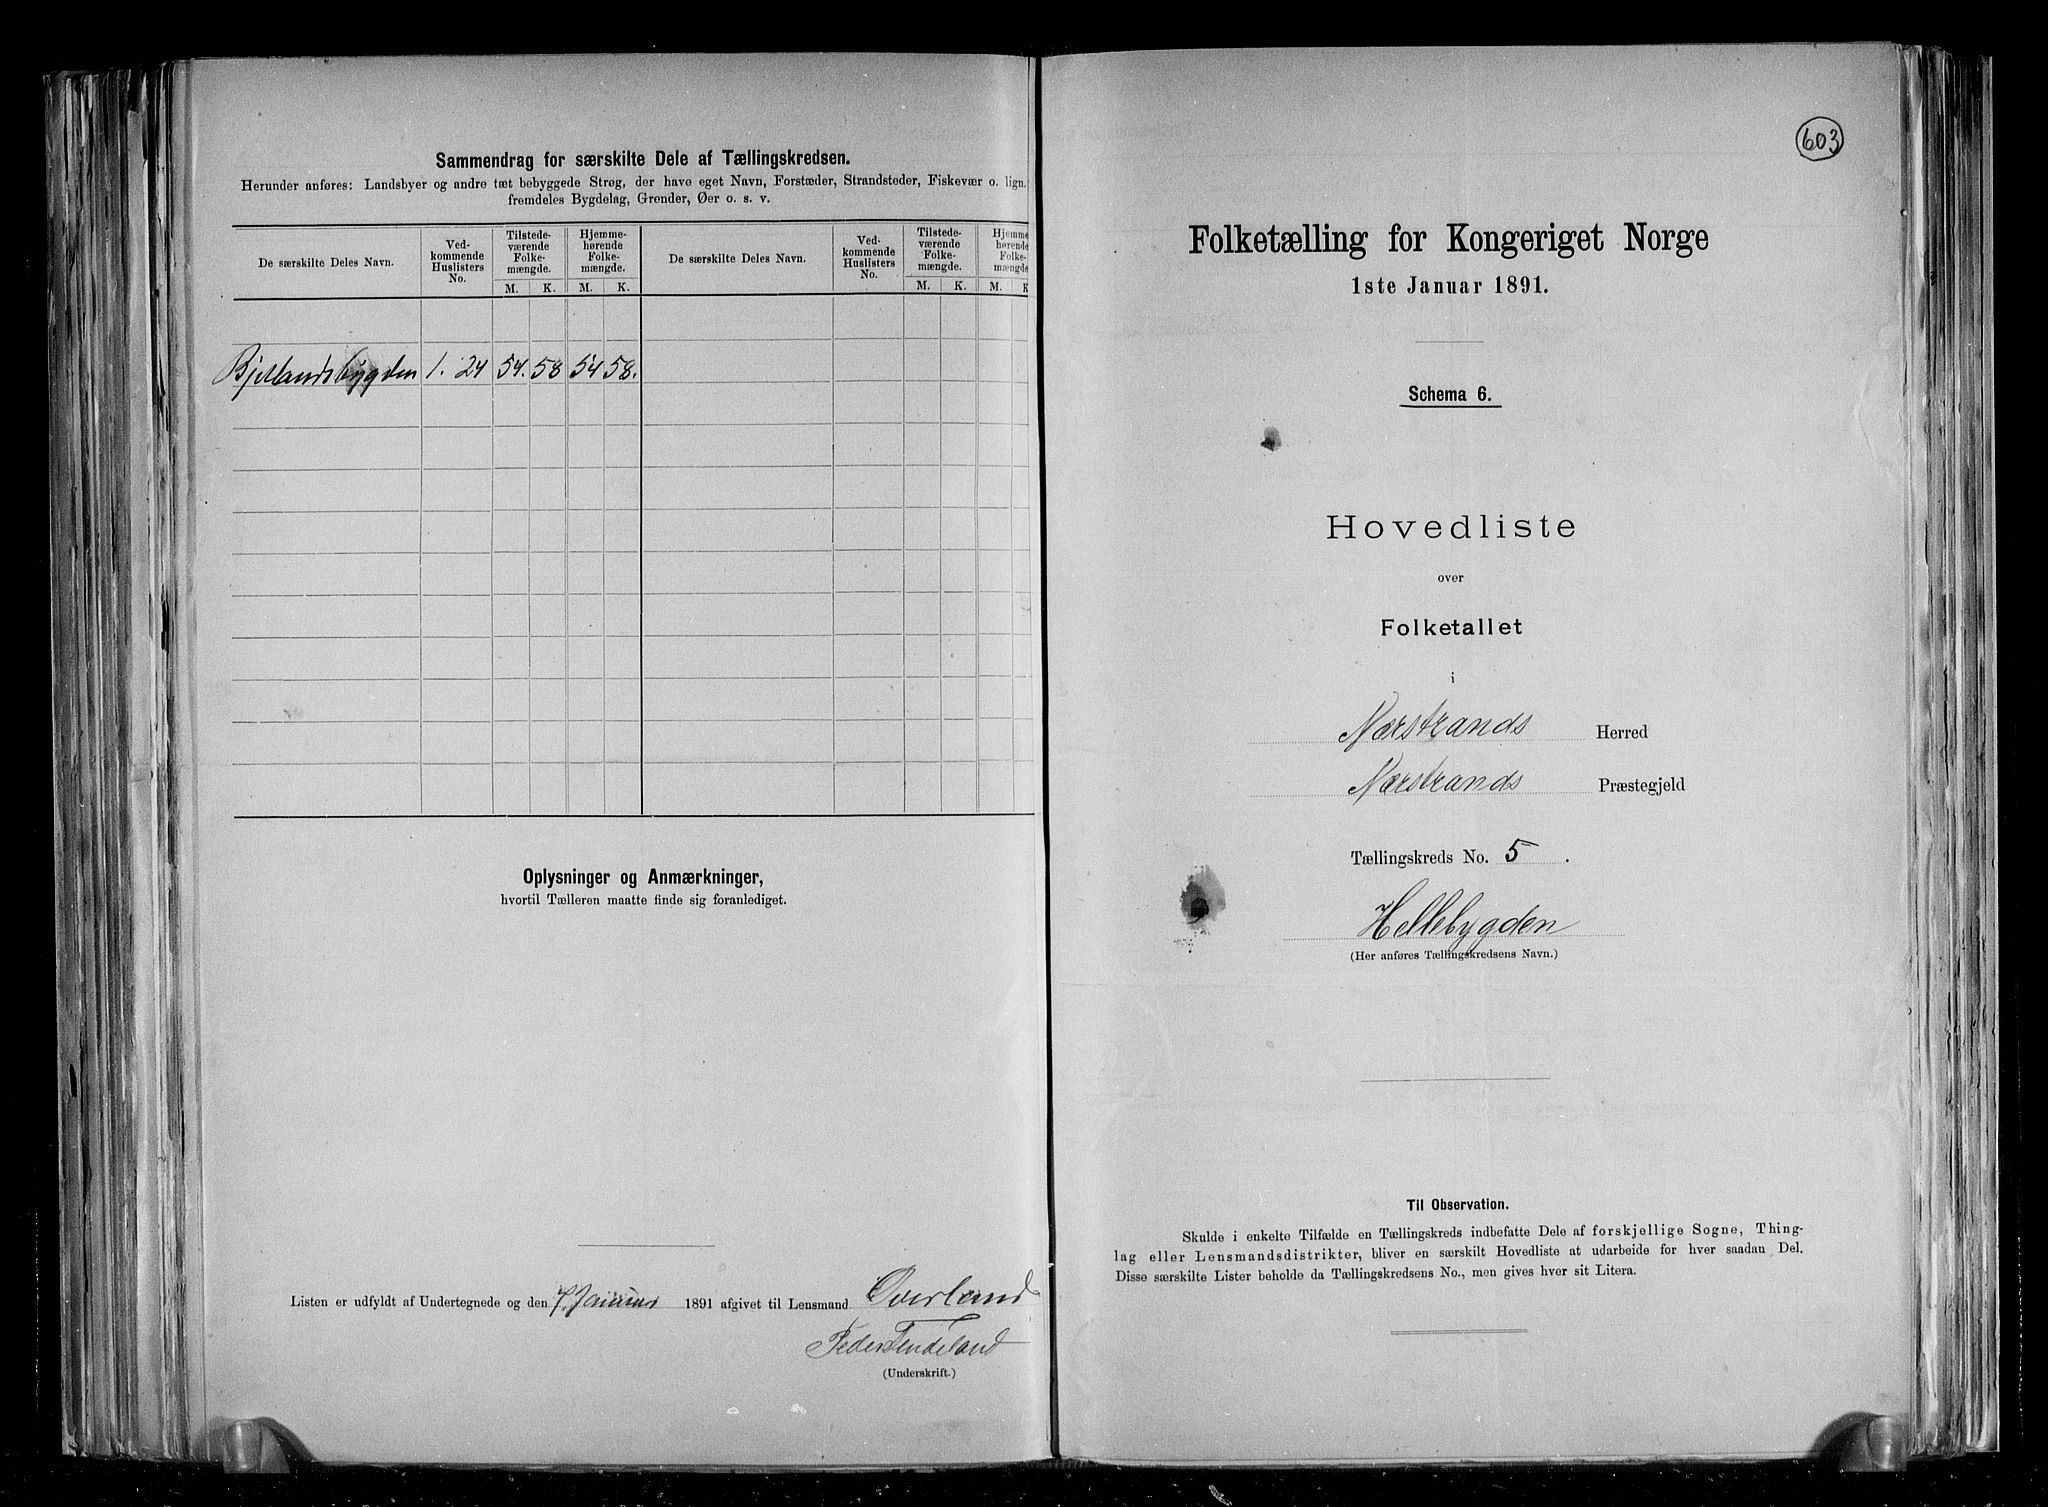 Sammendrag for særskilte Dele af Tællingskredsen.
Herunder anføres: Landsbyer og andre tæt bebyggede Strøg, der have eget Navn, Forstæder, Strandsteder, Fiskevær o. lign.
fremdeles Bygdelag, Grønder, Øer o. s. v.
De særskilte Deles Navn. Ved-kommende Huslisters No. Tilstede-værende Folke-mængde. Hjemme-hørende Folke-mængde. De særskilte Deles Navn. Ved-kommende Huslisters No. Tilstede-værende Folke-mængde. Hjemme-hørende Folke-mængde
M. K. M. K. M. K. M. K
Bjellandsbygden 1. 24 54. 58 54 58.
Oplysninger og Anmærkninger,
hvortil Tælleren maatte finde sig foranlediget.
Listen er udfyldt af Undertegnede og den 7. Januar 1891 afgivet til Lensmand Overland
Peder Tendeland
(Underskrift.)
603
Folketælling for Kongeriget Norge
1ste Januar 1891.
Schema 6.
Hovedliste
over
Folketallet
i
Nærstrands Herred
Nærstrands Præstegjeld
Tællingskreds No. 5.
Hellebygden
(Her anføres Tællingskredsens Navn.)
Til Observation.
Skulde i enkelte Tilfælde en Tællingskreds indbefatte Dele af forskjellige Sogne, Thing-
lag eller Lensmandsdistrikter, bliver en særskilt Hovedliste at udarbeide for hver saadan Del.
Disse særskilte Lister beholde da Tællingskredsens No., men gives hver sit Litera.